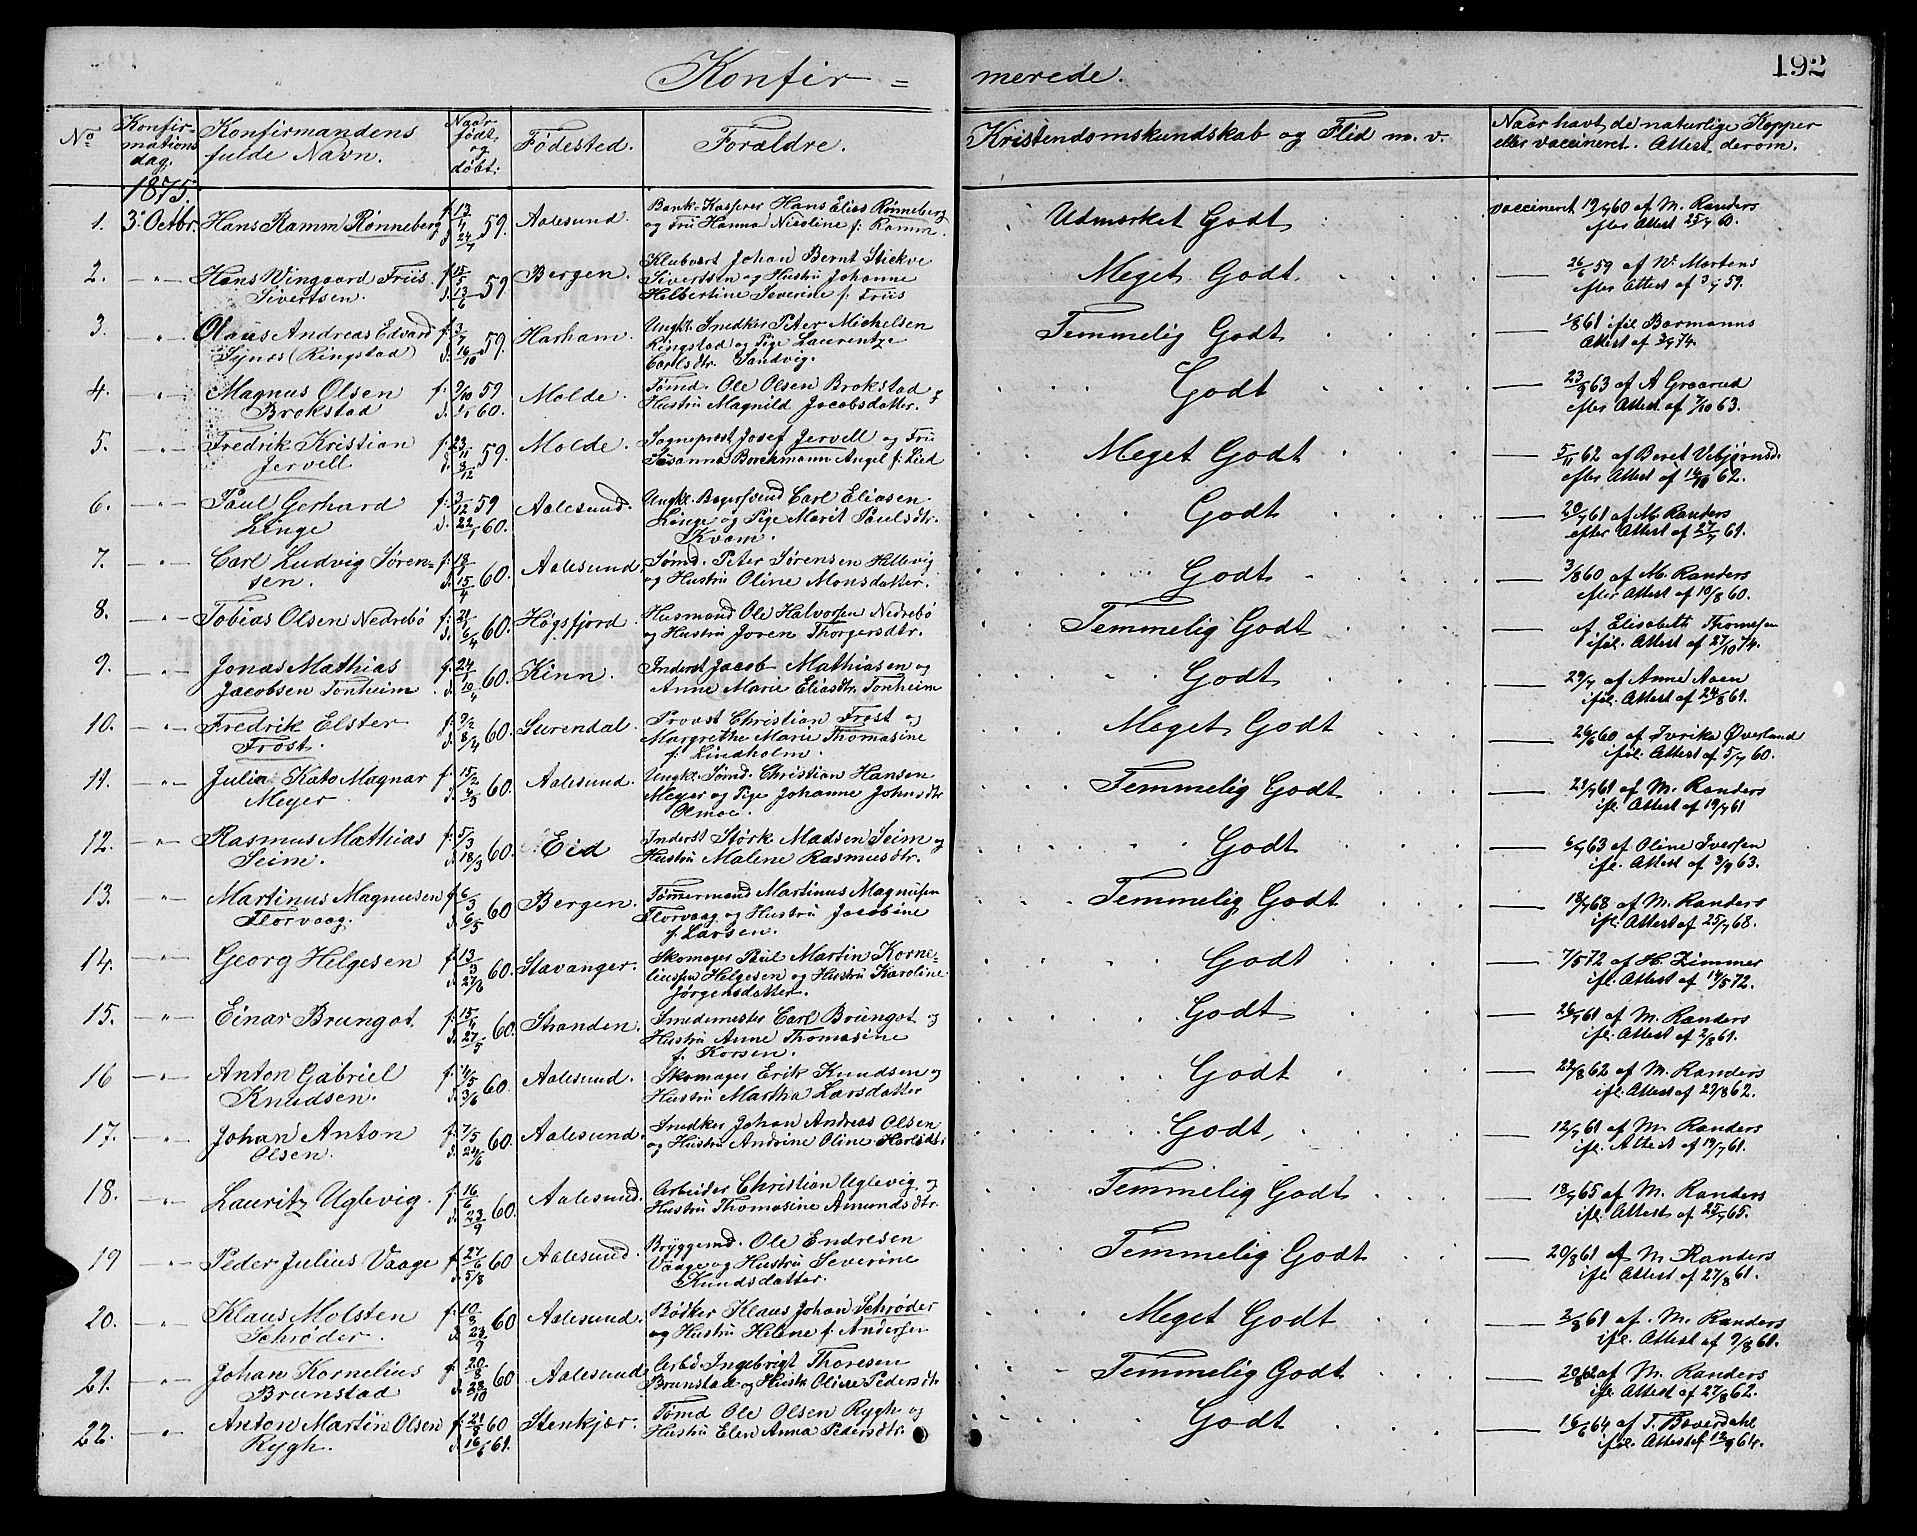 Konfir = merede. 192
No
Konfirmations dag.
Konfirmandens fulde Navn.
Naar født og døbt:
Fødested.
Forældre.
Kristendomskundskab og Flid m. v.
Naar havt de naturlige Kopper eller vaccineret. Attest derom.
1875.
1. 3. Octbr. Hans Ramm Rønneberg f. 13/4 d. 24/7 59. Aalesund. Bank-Kasserer Hans Elias Rønneberg Udmærket Godt vaccineret 19/7 60 af M. Randers
og Frü Hanna Nicoline f. Ramm. efter Attest 25/7 60.
2. —„— Hans Wingaard Friis Bergen. Klubvært Johan Bernt Stickve Meget Godt — 26/5 59 af W. Martens
Sivertsen. d. 13/6 59 Sivertsen og Hustrü Johanne efter Attest af 3/7 59.
Helbertine Severine f. Friis
3. —„— Olaus Andreas Edvard f. 3/7 59. Harham. Ungkl. Snedker Peter Michelsen Temmelig Godt — 1/8 61 iføl. Bormanns
Synes (Ringstad) d. 16/10 Ringstad og Pige Laurentze Attest af
Carlsdtr. Sandvig.
4. —„— Magnus Olsen f. 9/10 59 Molde. Tømd. Ole Olsen Brokstad og Godt — 23/9 63 af A Graarud
Brokstad d. 1/1 60. Hustrü Magnild Jacobsdatter. efter Attest af 7/10 63.
5. —„— Fredrik Kristian f. 23/11 59. Molde. Sogneprest Josef Jervell og Frü Meget Godt — 5/11 62 af Beret Vebjørnsd.
Jervell d. 3/12 Süsanna Borchmann Angel f. Lied efter Attest af 14/11 62.
6. —„— Paul Gerhard f. 3/12 59 Aalesund. Ungkl. Bagersvend Carl Eliasen Godt — 20/7 61 af M. Randers
Linge d. 22/1 60. Linge og Pige Marit Paulsdtr. efter Attest af 27/7 61.
Kvam.
7. —„— Carl Ludvig Søren= 60. Aalesund. Tømd. Peter Sørensen Hellevig Godt — 3/8 60 af M. Randers
sen. d. 15/4 og Hustrü Oline Monsdatter. efter Attest af 10/8 60.
8. —„— Tobias Olsen Nedrebø 60. Høgsfjord. Husmand Ole Halvorsen Nedrebø Temmelig Godt — af Elisabeth Thomesen
og Hustrü Joren Thorgersdtr. iføl. Attest af 27/10 74.
9. —„— Jonas Mathias f. 24/1 60. Kinn. Inderst Jacob Mathiasen og Godt — 29/7 af Anne Aaen
Jacobsen Tonheim d. 10/4 Anne Marie Eliasdtr. Tonheim iføl. Attest af 24/8 61.
10. —„— Fredrik Elster f. 9/2 60. Surendal. Provst Christian Frost og Meget Godt — 26/6 60 af Ivrika Øverland
Frost. d. 8/4 Margrethe Marie Thomasine iføl. Attest af 5/7 60.
f. Lindholm.
11. —„— Julia Kato Magnar f. 15/2 60. Aalesund. Ungkl. Tømd. Christian Hansen Temmelig Godt — 21/7 61 af M. Randers
Meyer. d. 4/5 Meyer og Pige Johanne Johnsdtr ifl. Attest af 19/7 61
Olmoe.
12. —„— Rasmus Mathias f. 5/3 60. Eid Inderst Størk Madsen Seim og Godt — 6/7 63 af Oline Iversen
Seim. d. 18/3 Hustrü Malene Rasmusdtr. ifl. Attest af 3/9 63.
13. —„— Martinus Magnusen f. 6/3 60 Bergen. Tømmermand Martinus Magnusen Temmelig Godt — 18/7 68 af M. Randers
Florvaag. d. 6/5 Florvaag og Hustrü Jacobine ifl. Attest af 25/7 68.
f. Larsen.
14. —„— Georg Helgesen f. 13/3 60. Stavanger. Skomager Paul Martin Korne= Godt — 7/5 72 af H. Zimmer
d. 27/6 liussen Helgesen og Hustrü Karoline ifl. Attest af 14/5 72.
Jørgensdatter.
15. —„— Einar Brungot f. 15/4 60. Stranden. Smedemester Carl Brungot og Godt — 26/7 61 af M. Randers
d. 27/5 Hustrü Anne Thomasine ifl. Attest af 2/8 61.
f. Korsen.
16 —„— Anton Gabriel f. 4/5 60. Aalesund. Skomager Erik Knudsen og Godt — 22/8 62 af M. Randers
Knudsen. d. 3/6 Hustrü Martha Larsdatter ifl. Attest af 29/8 62.
17. —„— Johan Anton f. 7/5 60. Aalesund. Snedker Johan Andreas Olsen Godt — 12/7 61 af M. Randers
Olsen. d. 24/6 og Hustrü Andrine Oline Karlsdtr ifl. Attest af 19/7 61.
18. —„— Lauritz Uglevig. f. 16/6 60. Aalesund. Arbeider Christian Uglevig og Temmelig Godt — 18/7 65 af M. Randers
d. 23/9 Hustrü Thomasine Amundsdtr. ifl. Attest af 25/7 65.
19 —„— Peder Julius Vaage f. 27/6 60 Aalesund. Bryggemd. Ole Endresen Temmelig Godt — 20/8 61 af M. Randers
d. 5/8 Vaage og Hustrü Severine ifl. Attest af 27/8 61.
Knudsdatter.
20. —„— Klaus Molsten f. 10/8 60 Aalesund. Bødker Klaus Johan Schrøder Meget Godt — 2/8 61 af M. Randers
Schrøder. d. 23/9 og Hustrü Helene f. Andersen ifl. Attest af 9/8 61.
21. —„— Johan Kornelius f. 20/8 60 Aalesund Arbd. Ingebrigt Thoresen Temmelig Godt — 20/8 62 af M. Randers
Brunstad d. 28/10 Brunstad og Hustr. Oline Pedersdtr ifl. Attest af 27/8 62.
22. —„— Anton Martin Olsen f. 21/8 60 Stenkjær. Tømd Ole Olsen Rygh og Godt — 16/6 64 af T. Bøverdahl
Rygh. d. 16/6 61. Hustrü Elen Anna Pedersdtr. iføl. Attest af 12/9 64.